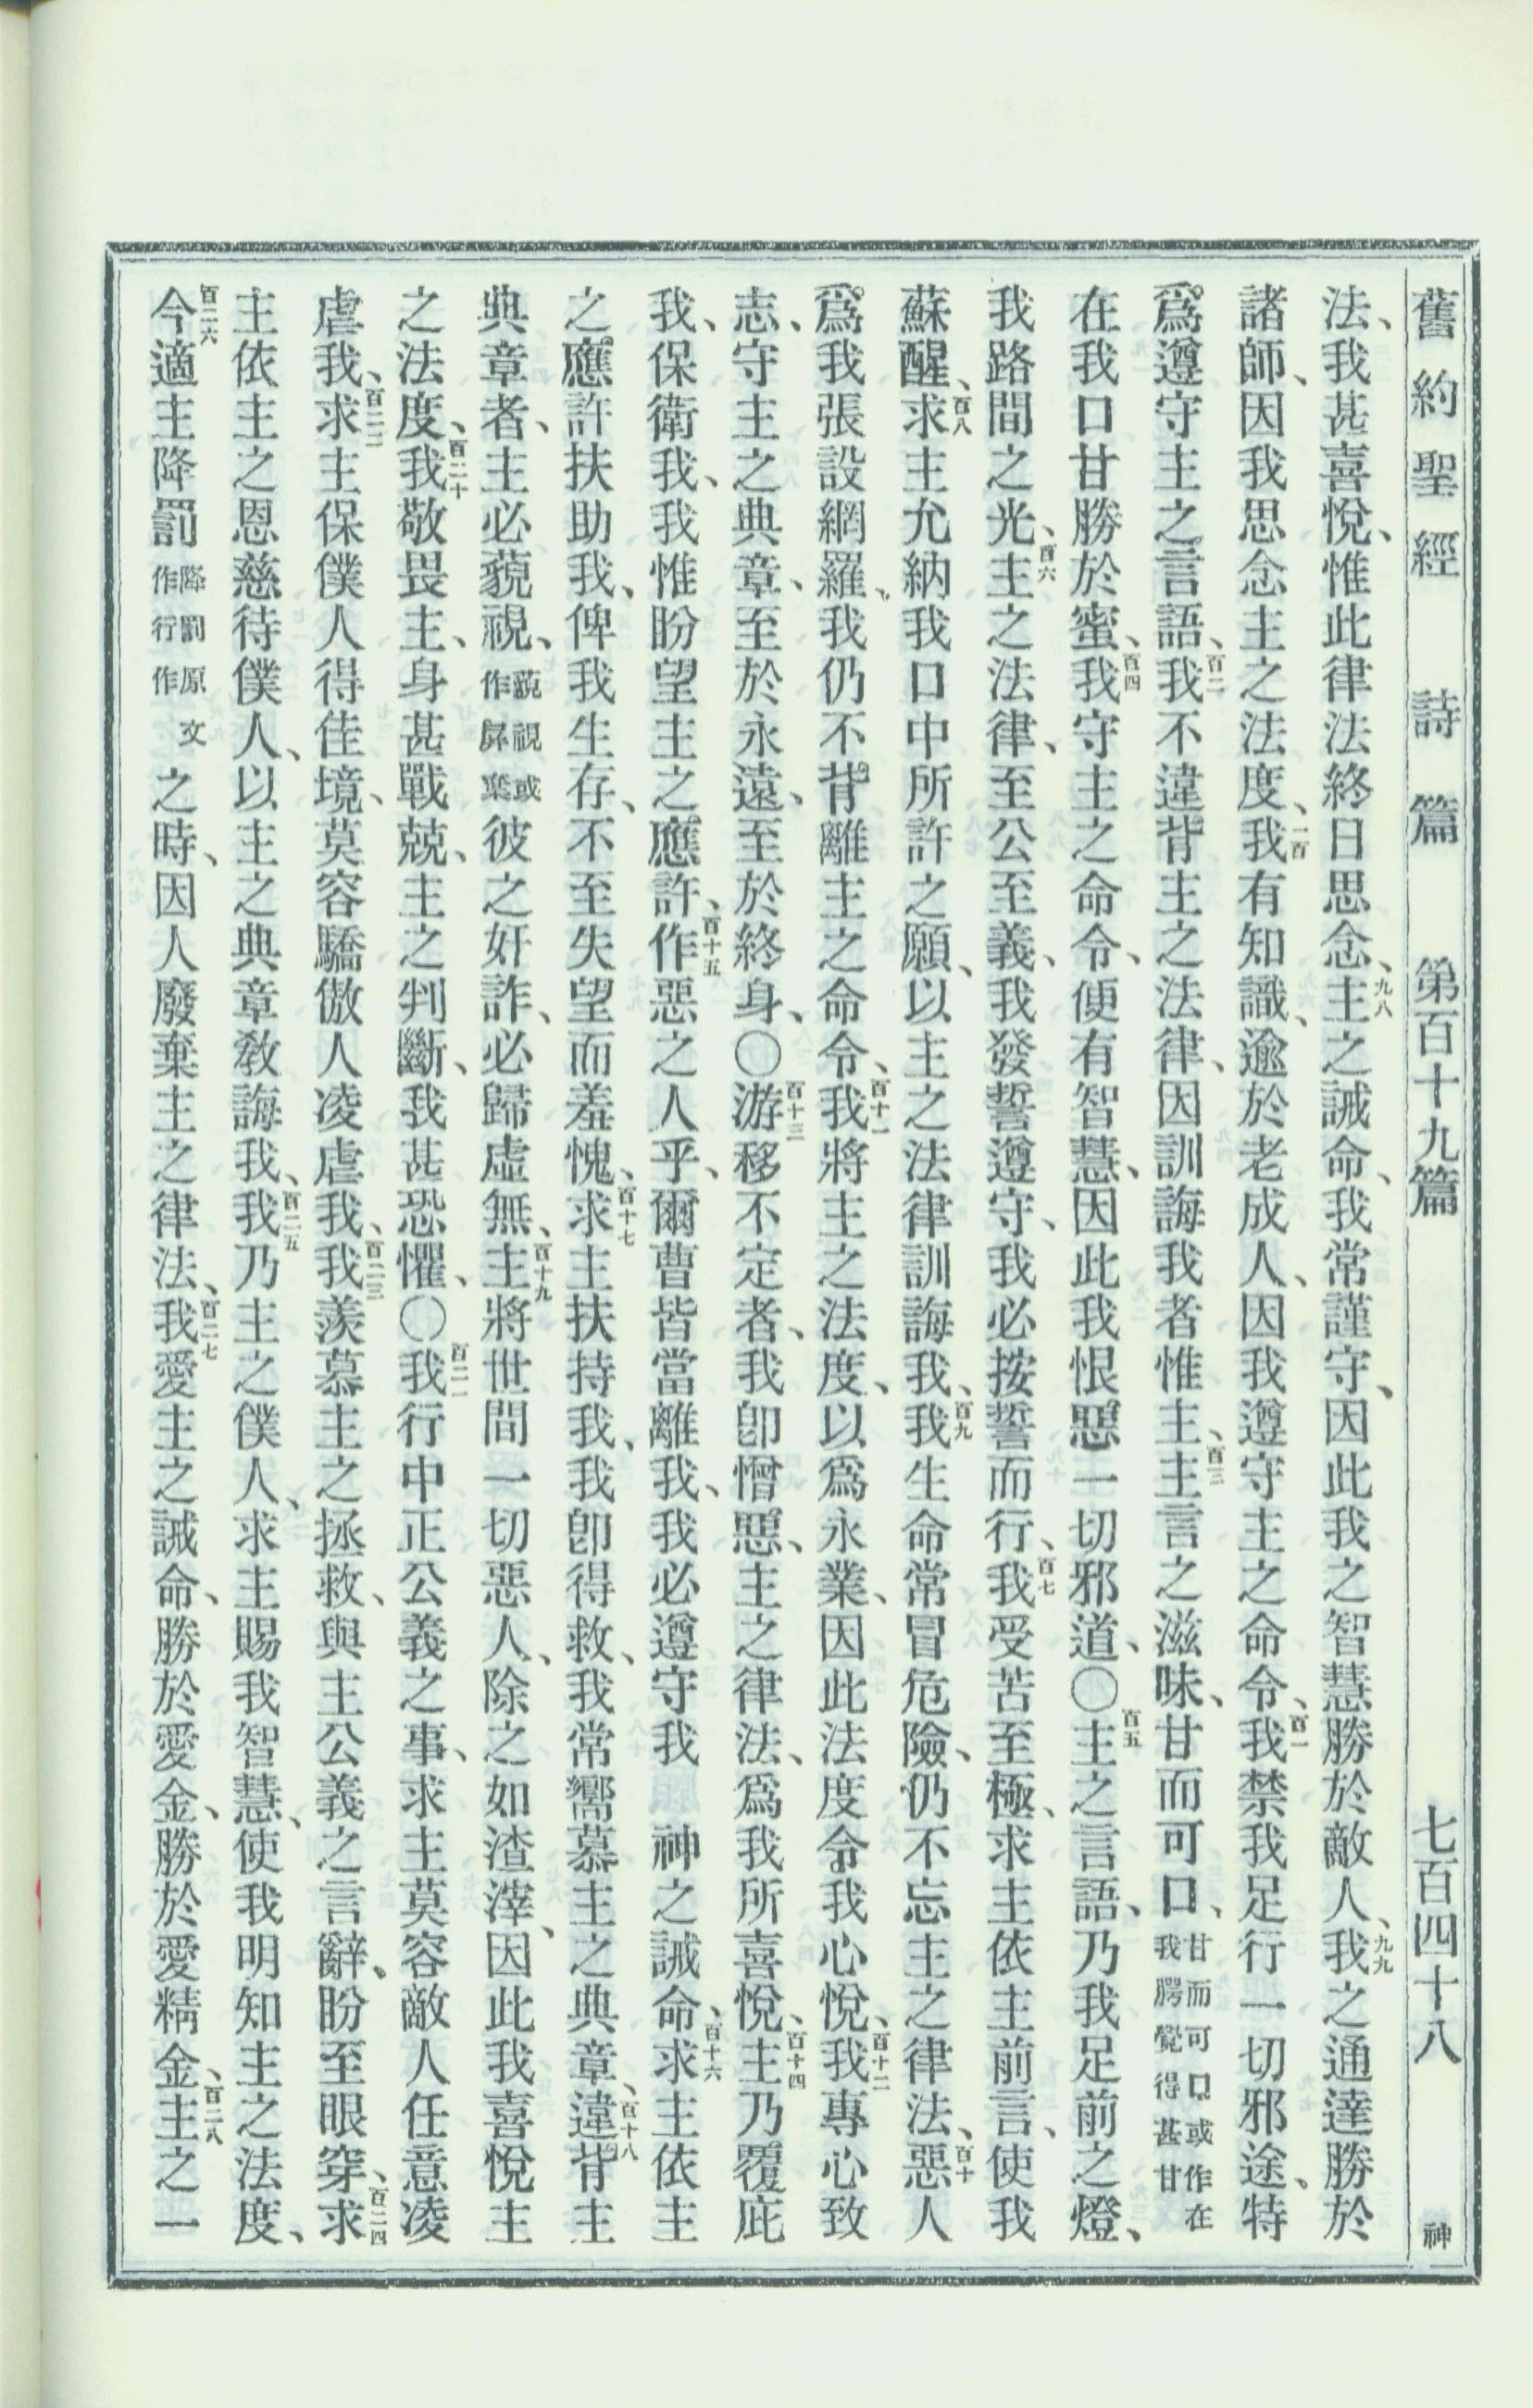 舊約聖經 詩篇 第百十九篇 七百四十八 神
法、我甚喜悅、惟此律法終日思念、九八主之誡命、我常謹守、因此我之智慧勝於敵人、九九我之通達勝於
諸師、因我思念主之法度、一百我有知識、逾於老成人、因我遵守主之命令、百一我禁我足行一切邪途、特
爲遵守主之言語、百二我不違背主之法律、因訓誨我者惟主、百三主言之滋味、甘而可口、甘而可口或作在我腭覺得甚甘
在我口甘勝於蜜、百四我守主之命令、便有智慧、因此我恨惡一切邪道、〇百五主之言語、乃我足前之燈、
我路間之光、百六主之法律、至公至義、我發誓遵守、我必按誓而行、百七我受苦至極、求主依主前言、使我
蘇醒、百八求主允納我口中所許之願、以主之法律訓誨我、百九我生命常冒危險、仍不忘主之律法、百十惡人
爲我張設網羅、我仍不背離主之命令、百十一我將主之法度、以爲永業、因此法度令我心悅、百十二我專心致
志、守主之典章、至於永遠、至於終身、〇百十三游移不定者、我卽憎惡、主之律法、爲我所喜悅、百十四主乃覆庇
我、保衛我、我惟盼望主之應許、百十五作惡之人乎、爾曹皆當離我、我必遵守我 神之誡命、百十六求主依主
之應許扶助我、俾我生存、不至失望而羞愧、百十七求主扶持我、我卽得救、我常嚮慕主之典章、百十八違背主
典章者、主必藐視、藐視或作屛棄彼之奸詐、必歸虛無、百十九主將世間一切惡人、除之如渣滓、因此我喜悅主
之法度、百二十我敬畏主、身甚戰兢、主之判斷、我甚恐懼、〇百二一我行中正公義之事、求主莫容敵人任意凌
虐我、百二二求主保僕人得佳境、莫容驕傲人凌虐我、百二三我羨慕主之拯救、與主公義之言辭、盼至眼穿、百二四求
主依主之恩慈待僕人、以主之典章教誨我、百二五我乃主之僕人、求主賜我智慧、使我明知主之法度、
百二六今適主降罰降罰原文作行作之時、因人廢棄主之律法、百二七我愛主之誡命、勝於愛金、勝於愛精金、百二八主之一